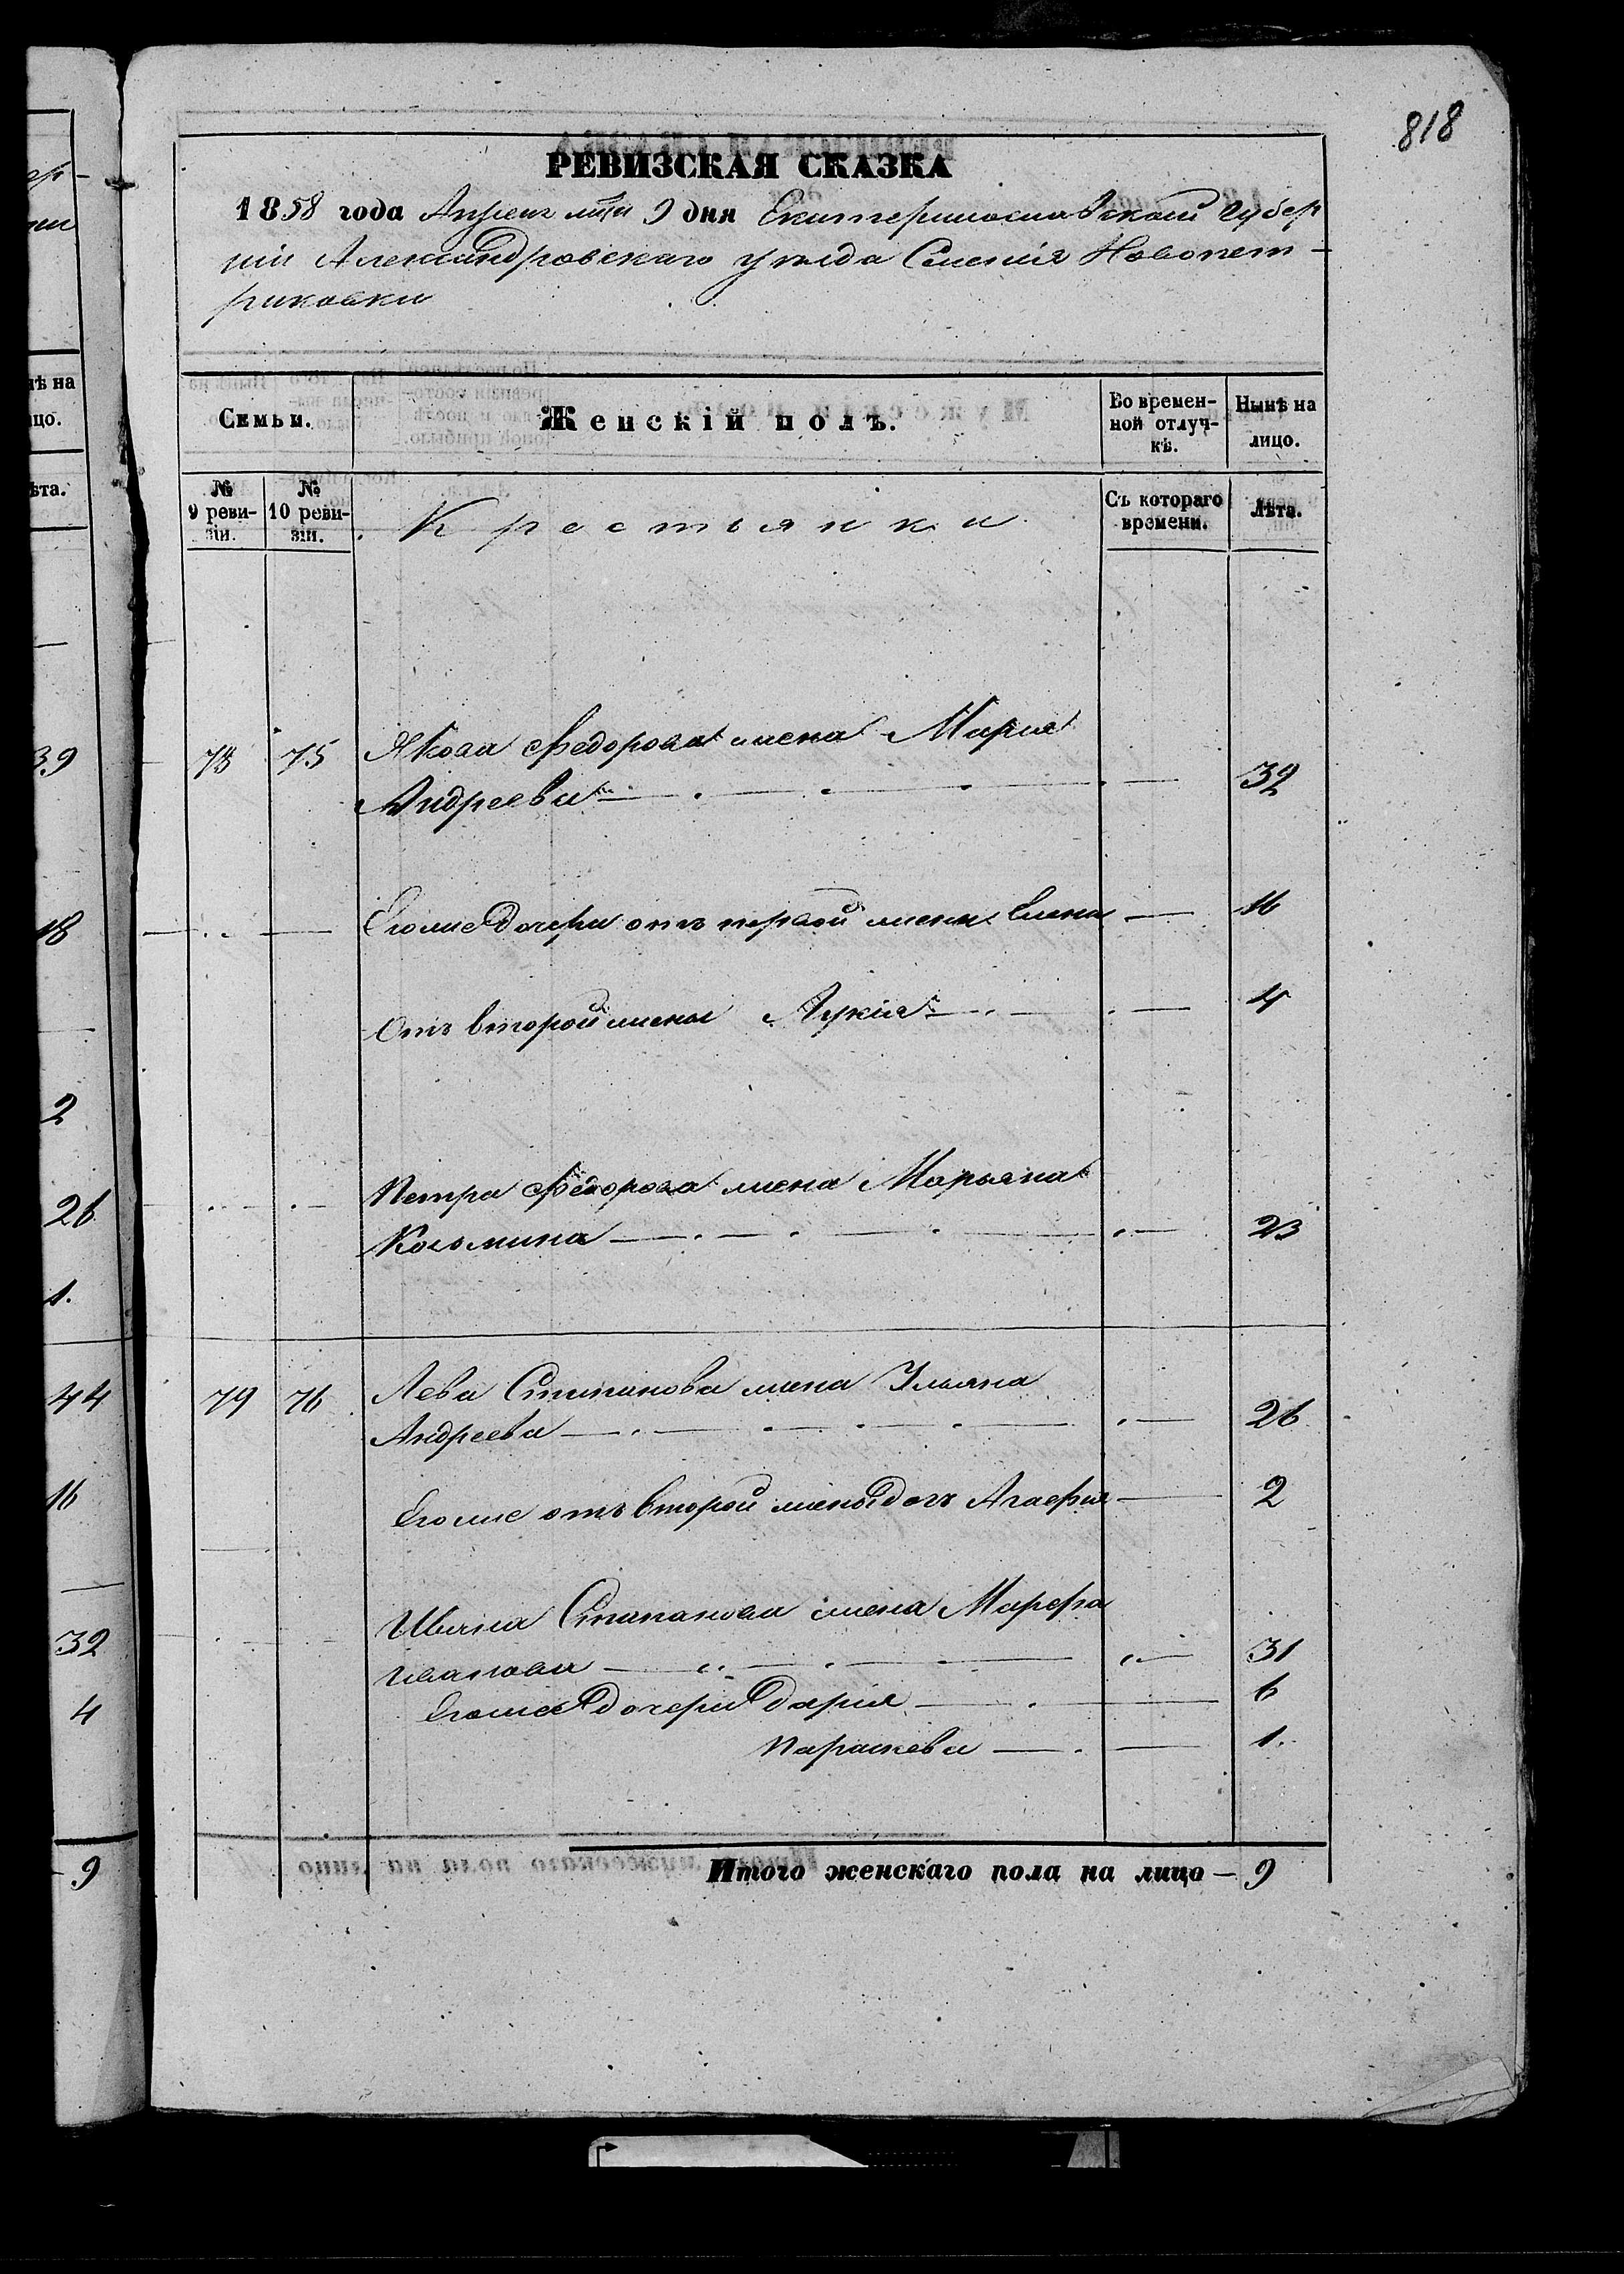 818
РЕВИЗСКАЯ СКАЗКА
1858 года Апреля мца 9 дня Екатеринославской Губер
нiи Александровскаго уѣзда Селенiя Новопет-
риковки
Семьи.
Женскiй полъ.
Во времен-
ной отлуч-
кѣ.
Нынѣ на
лицо.
№
9 реви-
зiи.
№
10 реви-
зiи.
Крестьянки
Съ котораго
времени.
Лѣта.
78 75 Якова Федорова жена Мария
Андреева 32
Егоже дочери отъ первой жены Елена 11
Отъ второй жены Лукiя 4
Петра Федорова жена Марьяна
Козьмина 23
79 76 Лева Степанова жена Ульяна
Андреева 26
Егоже отъ второй жены дочь Агафия 2
Ивана Степанова жена Марфа
Иванова 31
Егоже дочери Дария 6
Параскева 1.
Итого женскаго пола на лицо - 9
ѣта.
39
18
2
26
1.
44
16
32
4
9